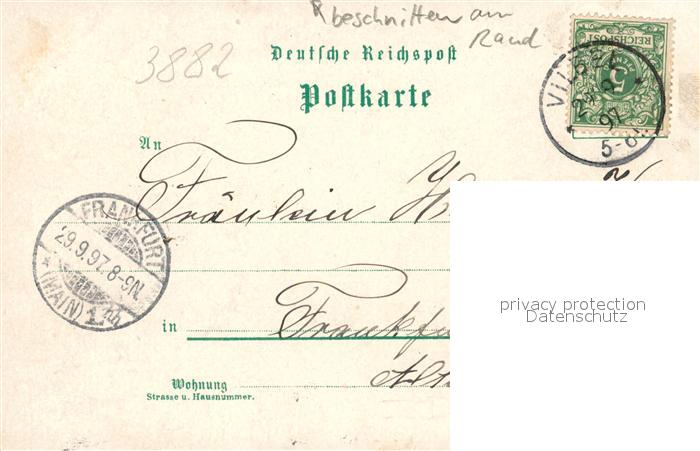 beschnitten am
Rand
3882
Deutsche Reichspost
Postkarte
REICHSPOST
5
VILBEL
97
5-6N
An
Fräulein
FRANKFURT
29.9.97. 8-9N.
* (MAIN) 1.
in
Wohnung
Strasse u. Hausnummer.
privacy protection
Datenschutz